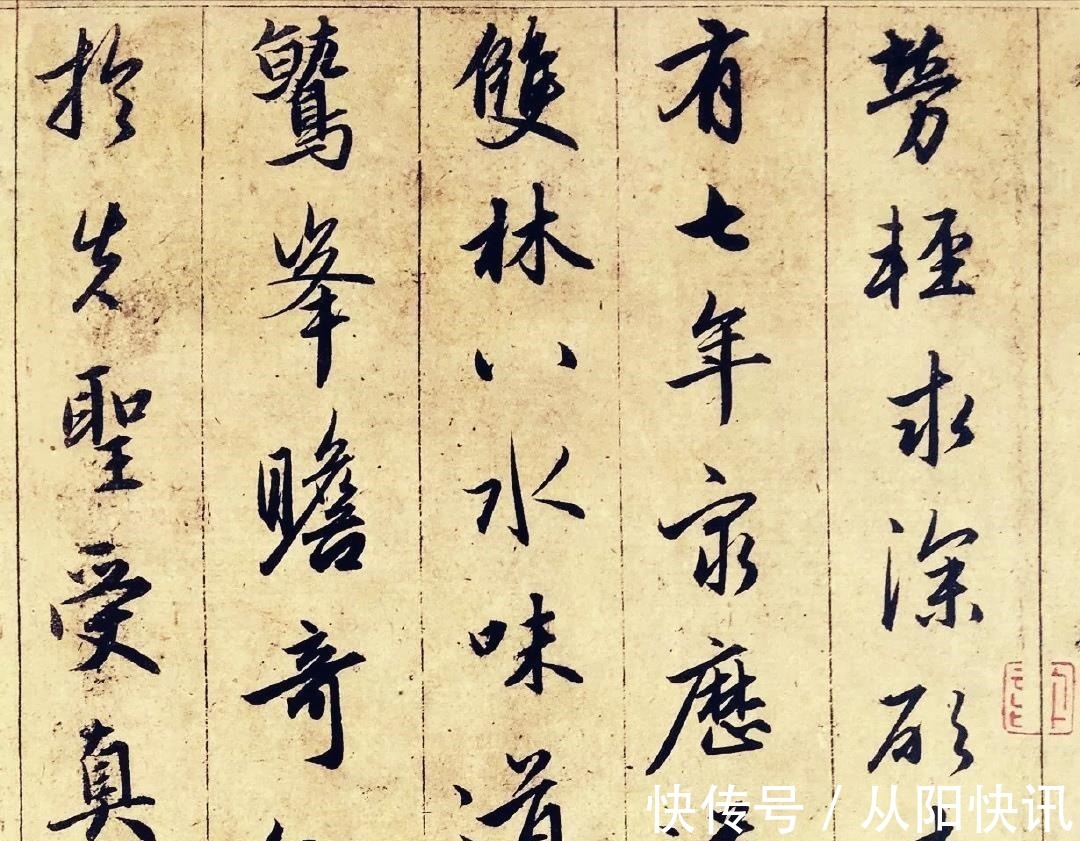 勞輕求深願
有七年窮歷
雙林八水味道
鷲峯瞻奇
於先聖受真
快传号 / 从阳快讯